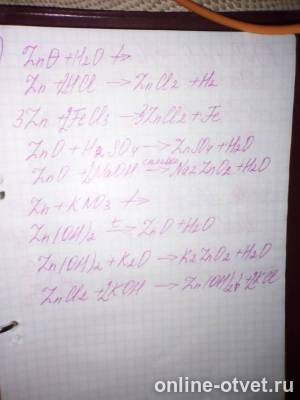 ZnO + H2O ↛
Zn + 2HCl → ZnCl2 + H2
3Zn + 2FeCl3 → 3ZnCl2 + Fe
ZnO + H2SO4 → ZnSO4 + H2O
ZnO + 2NaOH сплавл→ Na2ZnO2 + H2O
Zn + KNO3 ↛
Zn(OH)2 t→ ZnO + H2O
Zn(OH)2 + K2O → K2ZnO2 + H2O
ZnCl2 + 2KOH → Zn(OH)2↓ + 2KCl
online-otvet.ru